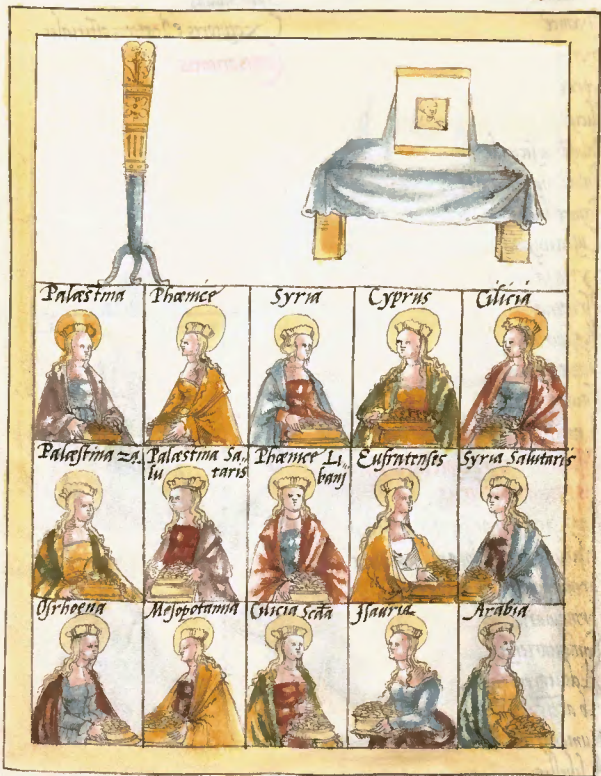 Palæstina
Phœnice
Syria
Cyprus
Cilicia
Palæstina 2a.
Palæstina Sa-
lu taris
Phœnice Li-
bani
Eufratensis
Syria Salutaris
Osrhoena
Mesopotamia
Cilicia Scda
Isauria
Arabia